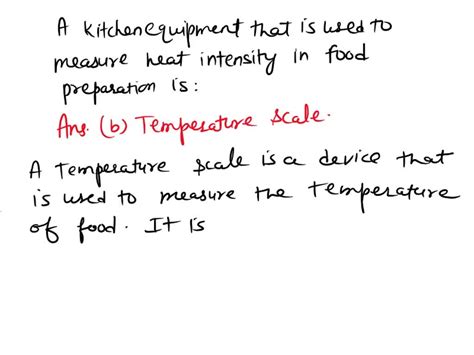 A Kitchen equipment that is used to
measure heat intensity in food
preparation is:
Ans. (b) Temperature scale.
A Temperature scale is a device that
is used to measure the temperature
of food. It is